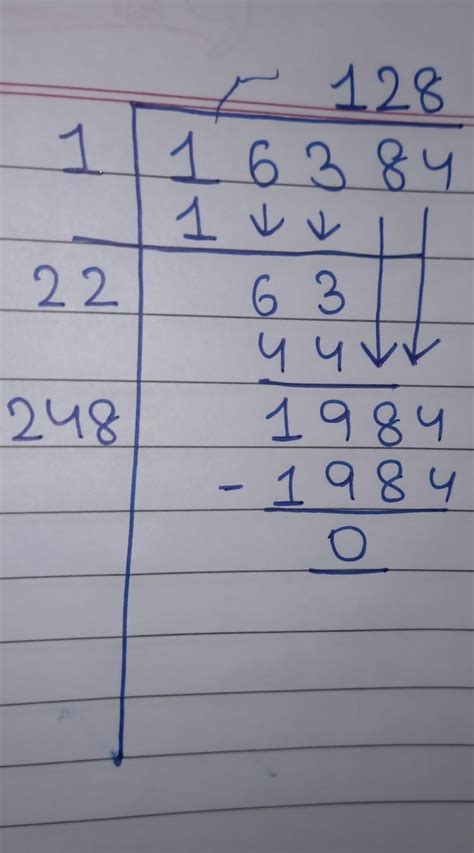 128
1 1 6 3 8 4
1 ↓ ↓
22 6 3
4 4
248 1 9 8 4
- 1 9 8 4
0